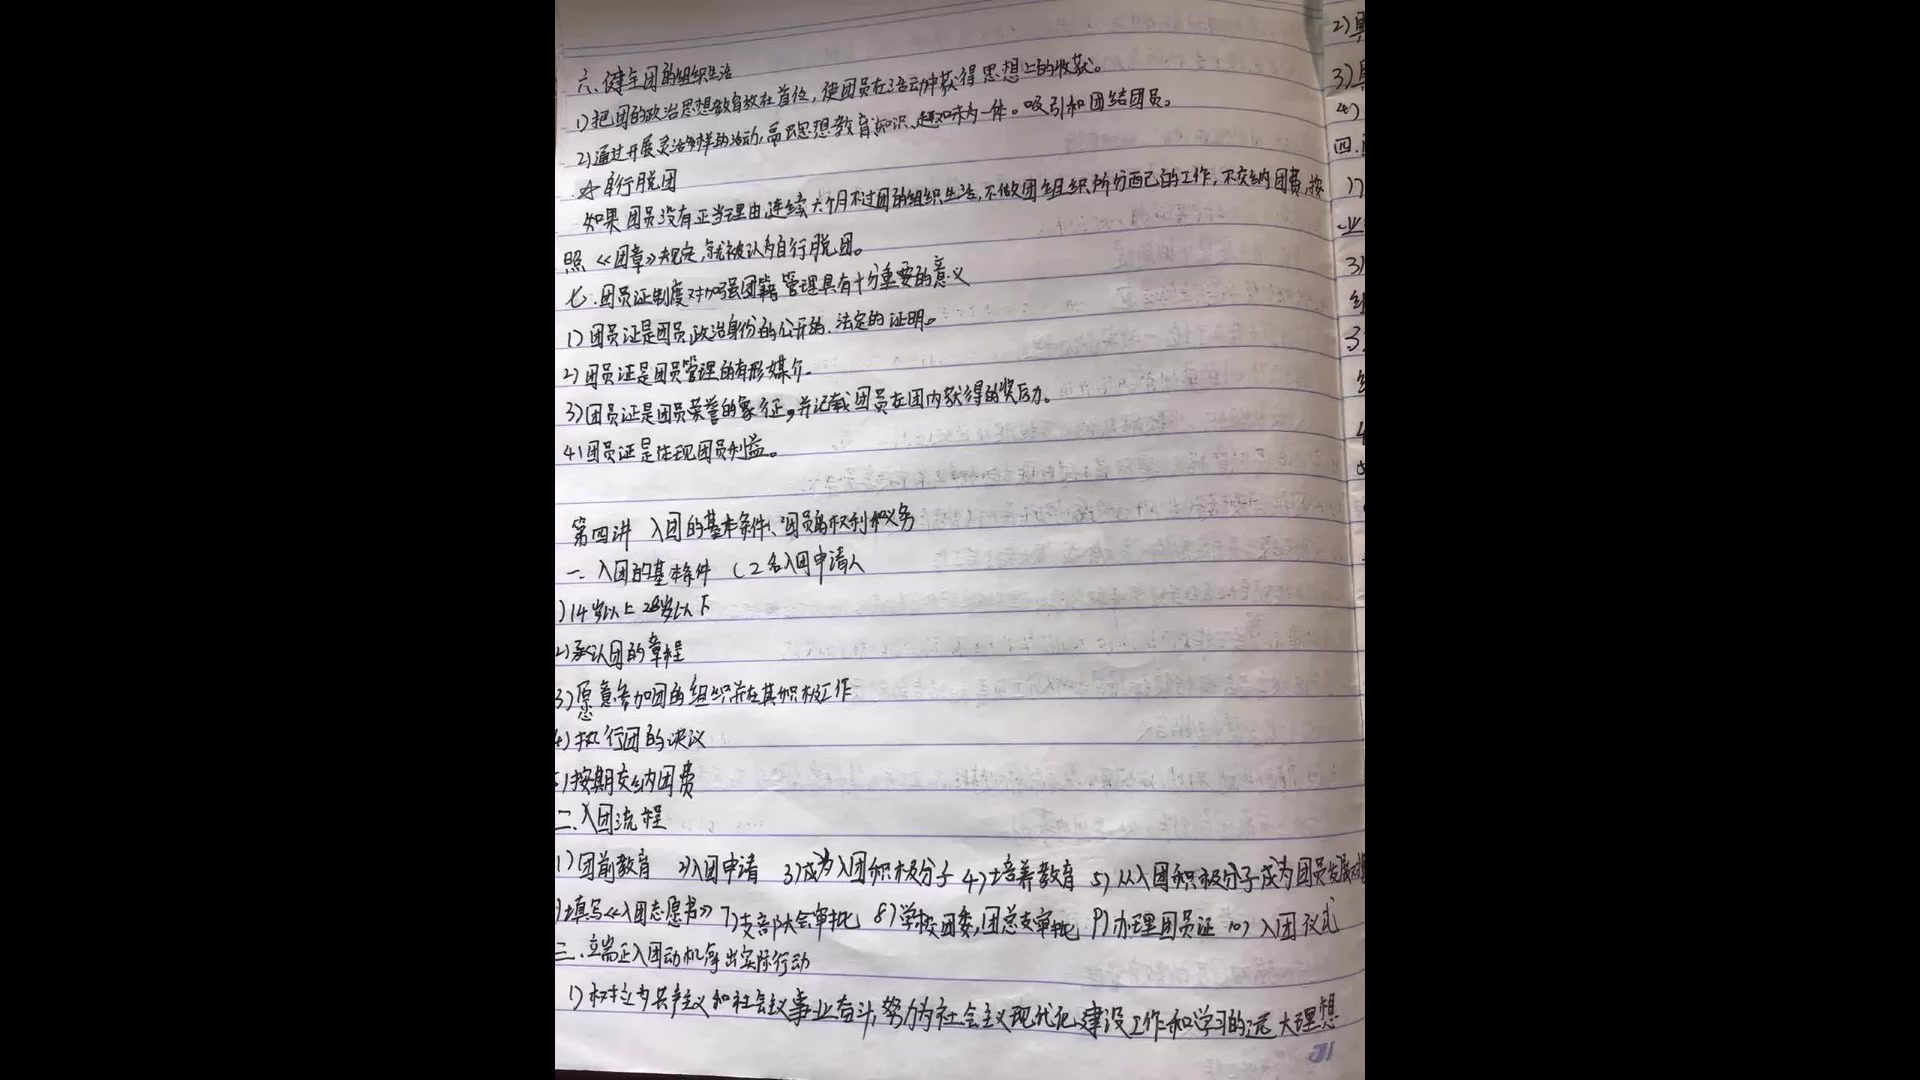 六、健全团的组织生活
1)把团的政治思想教育放在首位,使团员在活动中获得思想上的收获。
2)通过开展灵活多样的活动,寓思想教育、知识、趣味为一体。吸引和团结团员。
☆自行脱团
如果团员没有正当理由,连续六个月不过团的组织生活,不做团组织所分配的工作,不交纳团费,按
照《团章》规定,就被认为自行脱团。
七.团员证制度对加强团籍管理具有十分重要的意义
1)团员证是团员政治身份的公开的、法定的证明。
2)团员证是团员管理的有形媒介。
3)团员证是团员荣誉的象征,并记载团员在团内获得的奖励。
4)团员证是体现团员利益。
第四讲 入团的基本条件、团员的权利和义务
一. 入团的基本条件 (2名入团申请人
)14岁以上28岁以下
2)承认团的章程
3)愿意参加团的组织并在其积极工作
4)执行团的决议
5)按期交纳团费
二.入团流程
1)团前教育 2)入团申请 3)成为入团积极分子 4)培养教育 5)从入团积极分子成为团员发展对象
)填写《入团志愿书》 7)支部大会审批 8)学校团委,团总支审批 9)办理团员证 10)入团仪式
三.端正入团动机 实际行动
1)树立为共产主义和社会主义事业奋斗,努力为社会主义现代化建设工作和学习的远大理想
2)
3)
4)
四.
1)
业
3)
3.
4